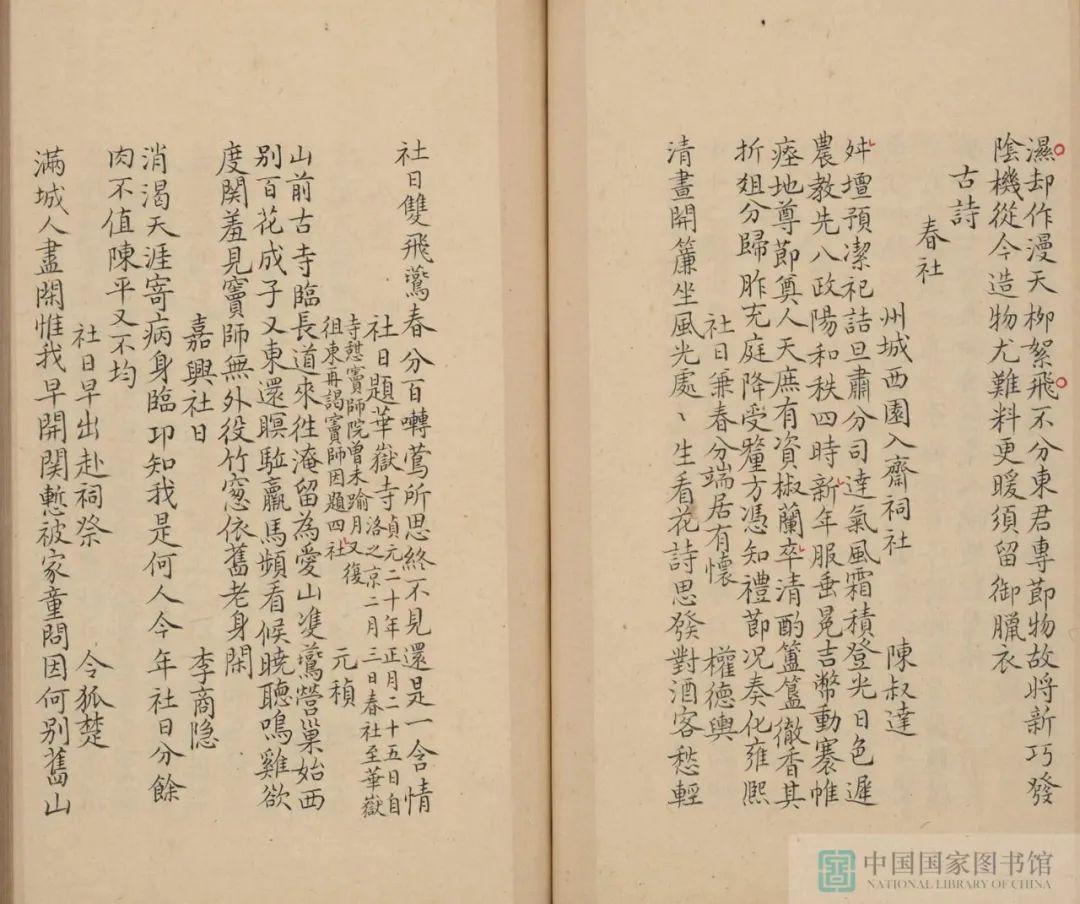 濕却作漫天柳絮飛不分東君專節物故將新巧發
陰機從今造物尤難料更暖須留御臘衣
古詩
春社
州城西園入齋祠社 陳叔達
升壇預潔祀詰旦肅分司達氣風霜積登光日色遲
農教先八政陽和秩四時新年服垂冕吉幣動褰帷
瘞地尊節奠人天庶有資椒蘭卒清酌簠簋徹香其
折俎分歸胙充庭降受釐方憑知禮節况奏化雍熙
社日兼春分端居有懷 權德輿
清晝開簾坐風光處〻生看花詩思發對酒客愁輕
社日雙飛鷰春分百囀鶯所思終不見還是一含情
社日題華嶽寺 貞元二十年正月二十五日自
洛之京二月三日春社至華嶽
寺憇竇師院曾未踰月又復
徂東再謁竇師因題四社 元稹
山前古寺臨長道來往淹留為愛山雙鷰營巢始西
別百花成子又東還瞑駐羸馬頻看候曉聽鳴雞欲
度関羞見竇師無外役竹窓依舊老身閑
嘉興社日 李商隐
消渴天涯寄病身臨邛知我是何人今年社日分餘
肉不值陳平又不均
社日早出赴祠祭 令狐楚
滿城人盡閑惟我早開関慙被家童問因何別舊山
中国国家图书馆
NATIONAL LIBRARY OF CHINA